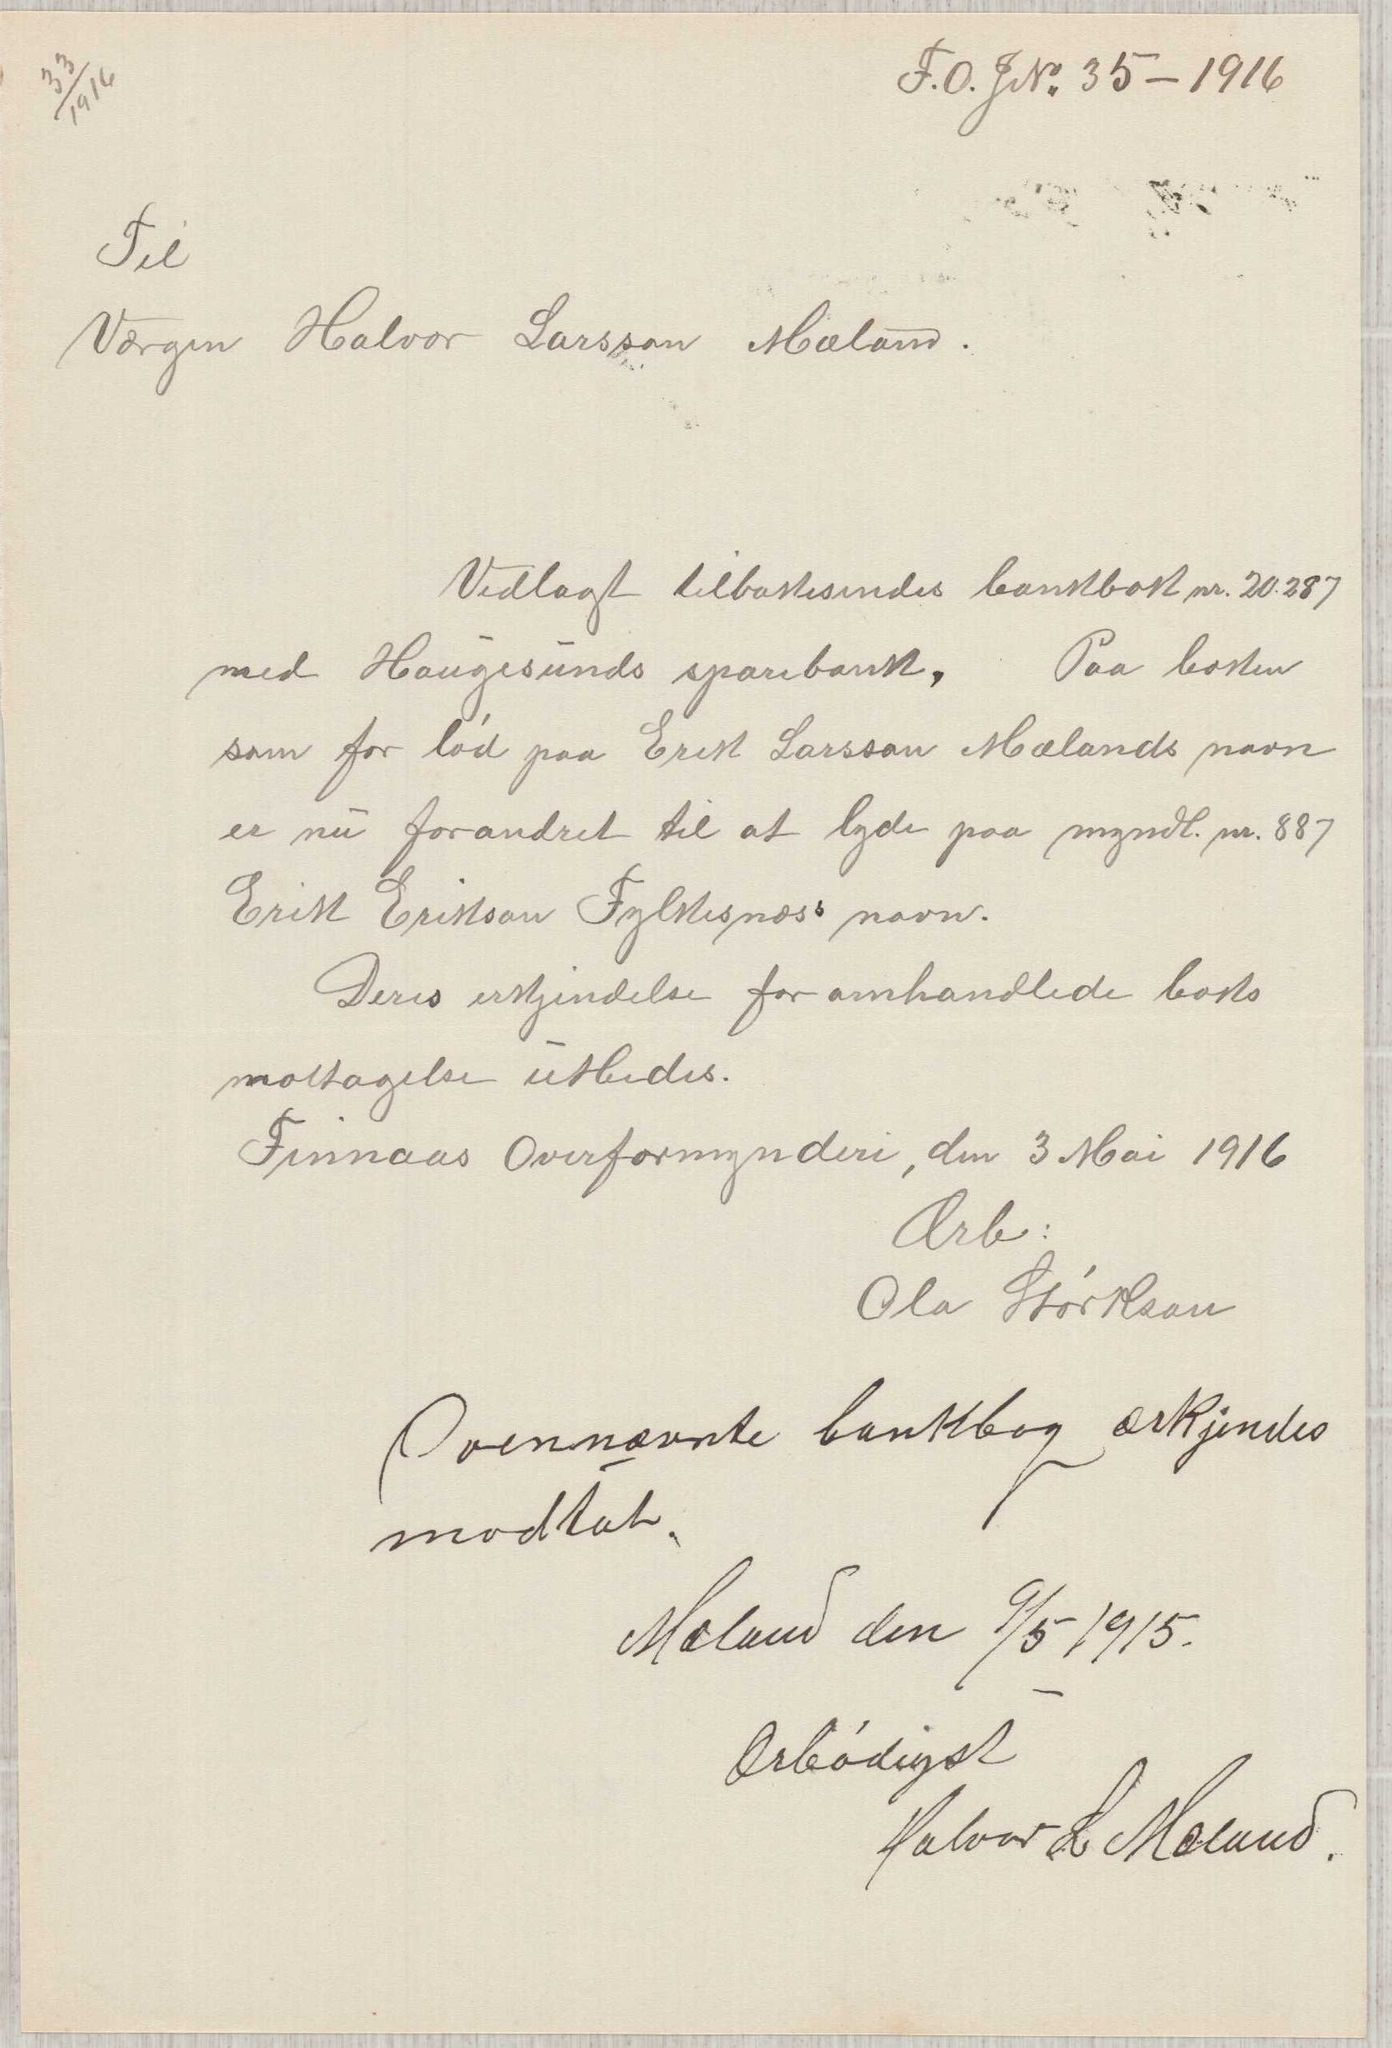 33/1916
F.O. J№. 35 – 1916
Til
Værgen Halvor Larsson Mæland.
Vedlagt tilbakesendes bankbok nr. 20.287
med Haugesunds sparebank. Paa boken
som før lød paa Erik Larsson Mælands navn
er nu forandret til at lyde paa myndl. nr. 887
Erik Erikson Fylkesnæs's navn.
Deres erkjendelse for omhandlede boks
mottagelse utbedes.
Finnaas Overformynderi, den 3 Mai 1916
Ærb:
Ola Størkson
Ovennævnte bankbog ærkjendes
modtat.
Mæland den 9/5 1915.
Ærbødigst
Halvor L Mæland.